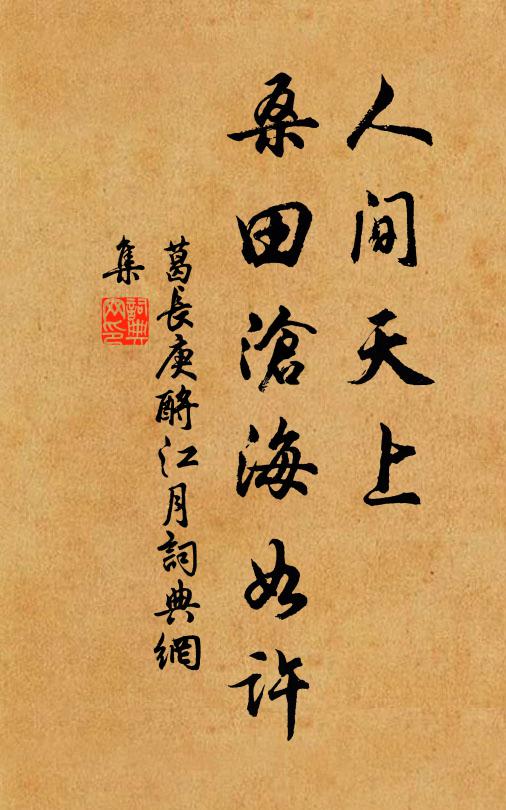 人间天上
桑田滄海如许
葛長庚酹江月詞典網
集
詞典